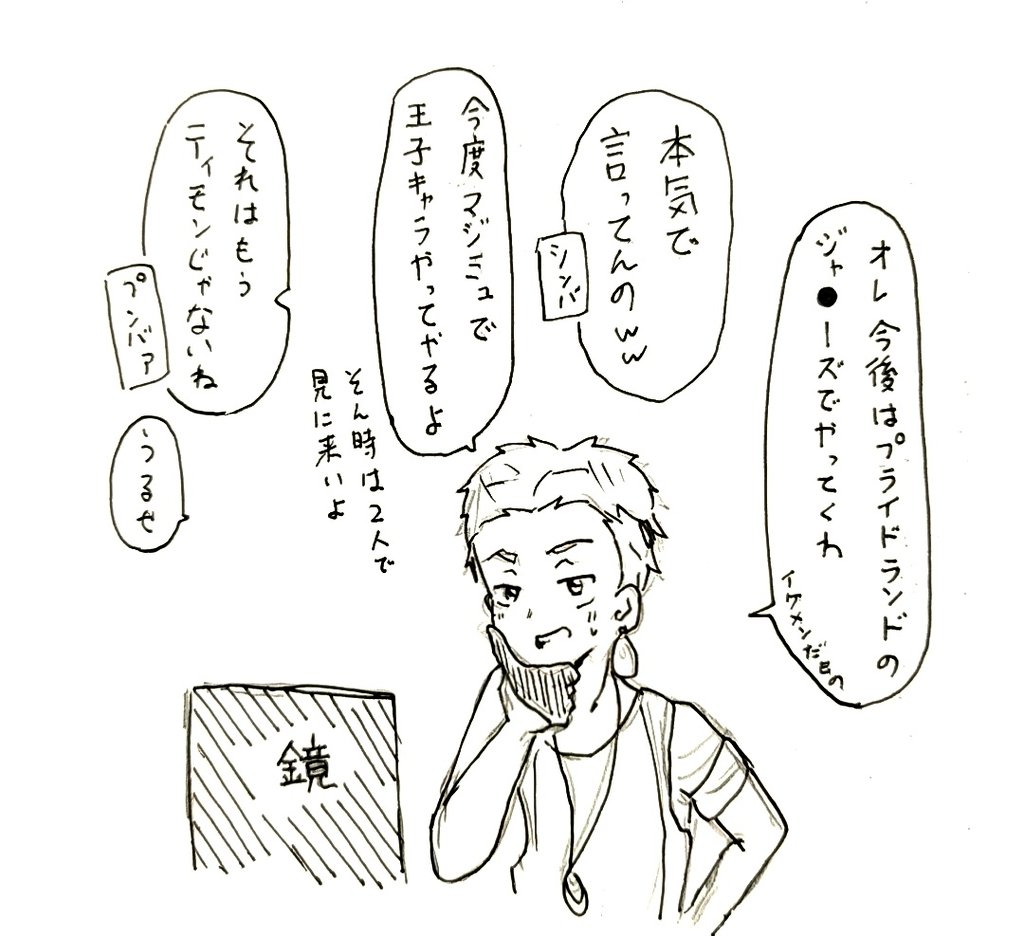 オレ今後はプライドランドの
ジャ●ーズでやってくわ
イケメンだもの
本気で
言ってんのww
シンバ
今度マジミュで
王子キャラやってやるよ
そん時は2人で
見に来いよ
それはもう
ティモンじゃないね
プンバァ
うるせ
鏡